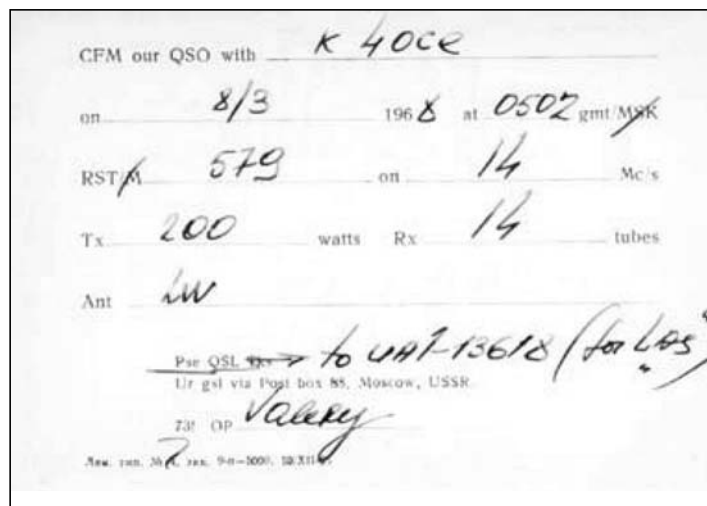 CFM our QSO with K 4OCE
on 8/3 1968 at 0502 gmt/MSK
RST/M 579 on 14 Mc/s
Tx 200 watts Rx 14 tubes
Ant LW
Pse QSL to UA1-13618 (for
Ur qsl via Post box 88, Moscow, USSR
73! OP Valery
зак. 9-п—5000.